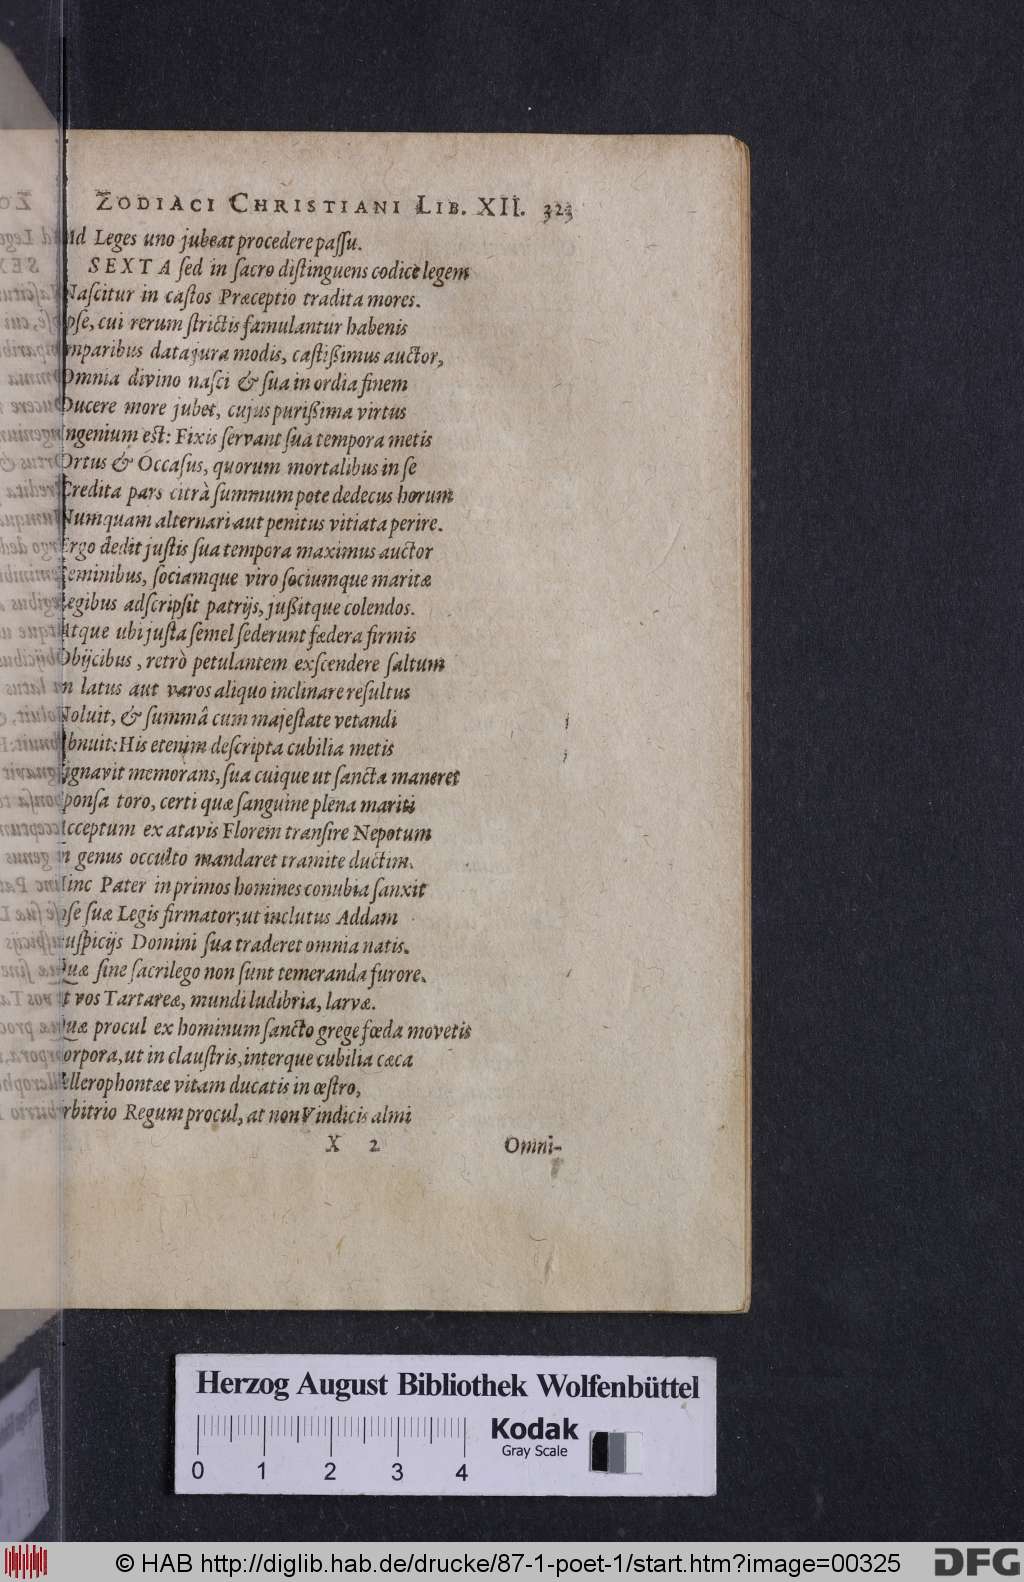 ZODIACI CHRISTIANI LIB. XII. 323
Ad Leges uno jubeat procedere passu.
SEXTA sed in sacro distinguens codice legem
Nascitur in castos Præceptio tradita mores.
Ipse, cui rerum strictis famulantur habenis
Imparibus data jura modis, castißimus auctor,
Omnia divino nasci & sua in ordia finem
Ducere more jubet, cujus purißima virtus
Ingenium est: Fixis servant sua tempora metis
Ortus & Occasus, quorum mortalibus in se
Credita pars citrà summum pote dedecus horum
Numquam alternari aut penitus vitiata perire.
Ergo dedit justis sua tempora maximus auctor
Seminibus, sociamque viro sociumque maritæ
Legibus adscripsit patrijs, jußitque colendos.
Atque ubi justa semel sederunt fædera firmis
Obijcibus, retrò petulantem exscendere saltum
In latus aut varos aliquo inclinare resultus
Noluit, & summâ cum majestate vetandi
Abnuit: His etenim descripta cubilia metis
Signavit memorans, sua cuique ut sancta maneret
Sponsa toro, certi quæ sanguine plena mariti
Acceptum ex atavis Florem transire Nepotum
In genus occulto mandaret tramite ductim.
Hinc Pater in primos homines conubia sanxit
Ipse suæ Legis firmator; ut inclutus Addam
Auspicijs Domini sua traderet omnia natis.
Quæ sine sacrilego non sunt temeranda furore.
At vos Tartareæ, mundi ludibria, larvæ.
Quæ procul ex hominum sancto grege fœda movetis
Corpora, ut in claustris, interque cubilia cæca
Bellerophontææ vitam ducatis in œstro,
Arbitrio Regum procul, at non Vindicis almi
X 2 Omni-
Herzog August Bibliothek Wolfenbüttel
Kodak
Gray Scale
0 1 2 3 4
© HAB http://diglib.hab.de/drucke/87-1-poet-1/start.htm?image=00325
DFG